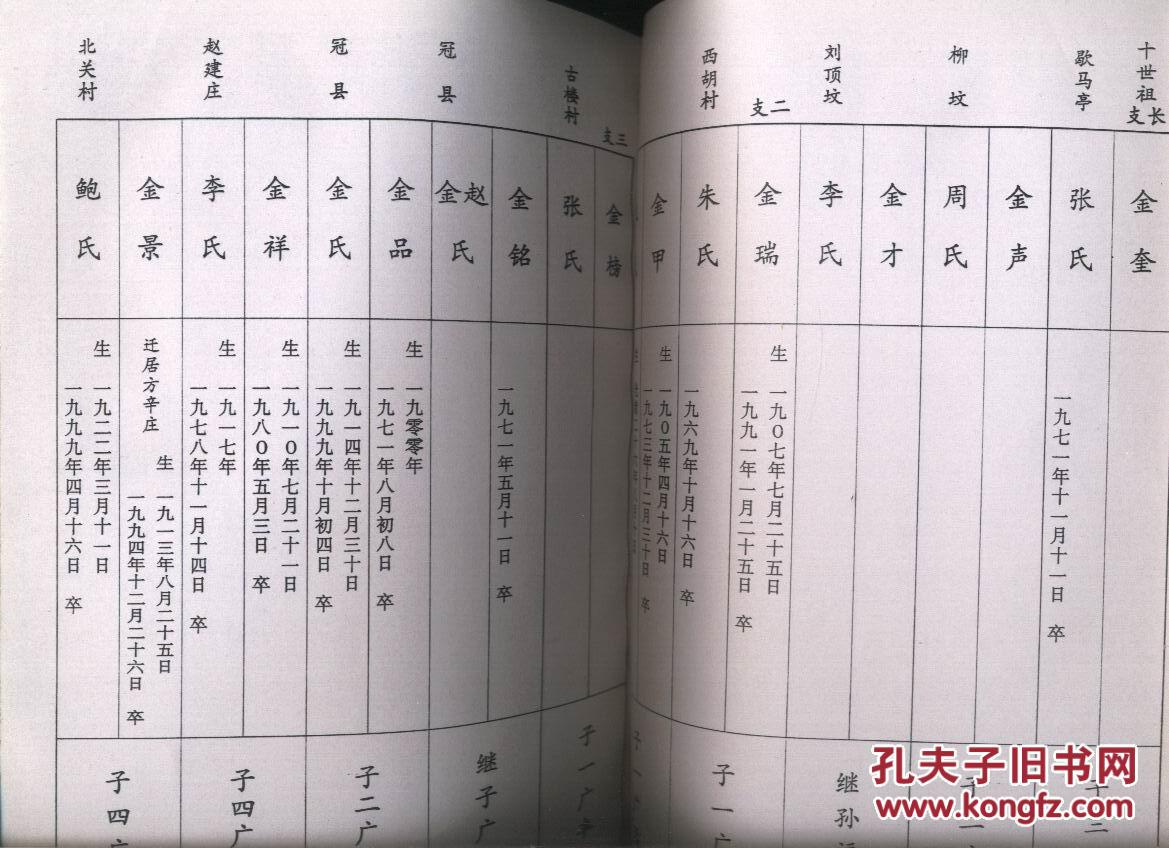 十世祖
长支
歇马亭
柳坟
刘顶坟
二支
西胡村
金奎
张氏
一九七一年十一月十一日 卒
金声
周氏
金才
李氏
继孙
金瑞
生 一九0七年七月二十五日
一九九一年一月二十五日 卒
朱氏
一九六九年十月十六日 卒
子一广
金甲
生 一九0五年四月十六日
一九七三年十二月三十日 卒
三支
古楼村
冠县
冠县
赵建庄
北关村
金榜
张氏
子一广
金铭
一九七一年五月十一日 卒
赵氏
金
继子广
金品
生 一九零零年
一九七一年八月初八日 卒
金氏
生 一九一四年十二月三十日
一九九九年十月初四日 卒
子二广
金祥
生 一九一0年七月二十一日
一九八0年五月三日 卒
李氏
生 一九一七年
一九七八年十一月十四日 卒
子四广
金景
迁居方辛庄
生 一九一三年八月二十五日
一九九四年十二月二十六日 卒
鲍氏
生 一九二二年三月十一日
一九九九年四月十六日 卒
子四广
孔夫子旧书网
www.kongfz.com